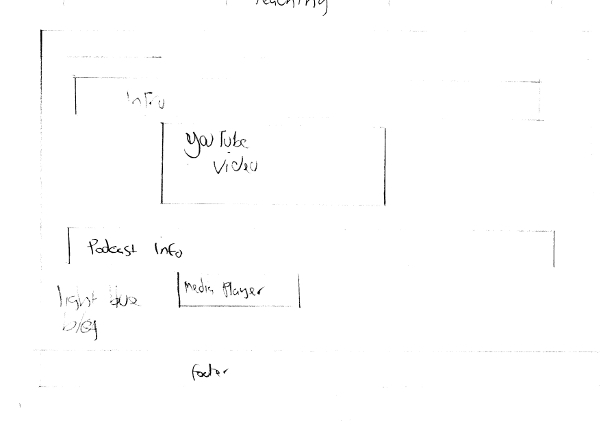 Teaching
Info
YouTube
Video
Podcast Info
Media Player
light blue
blog
footer